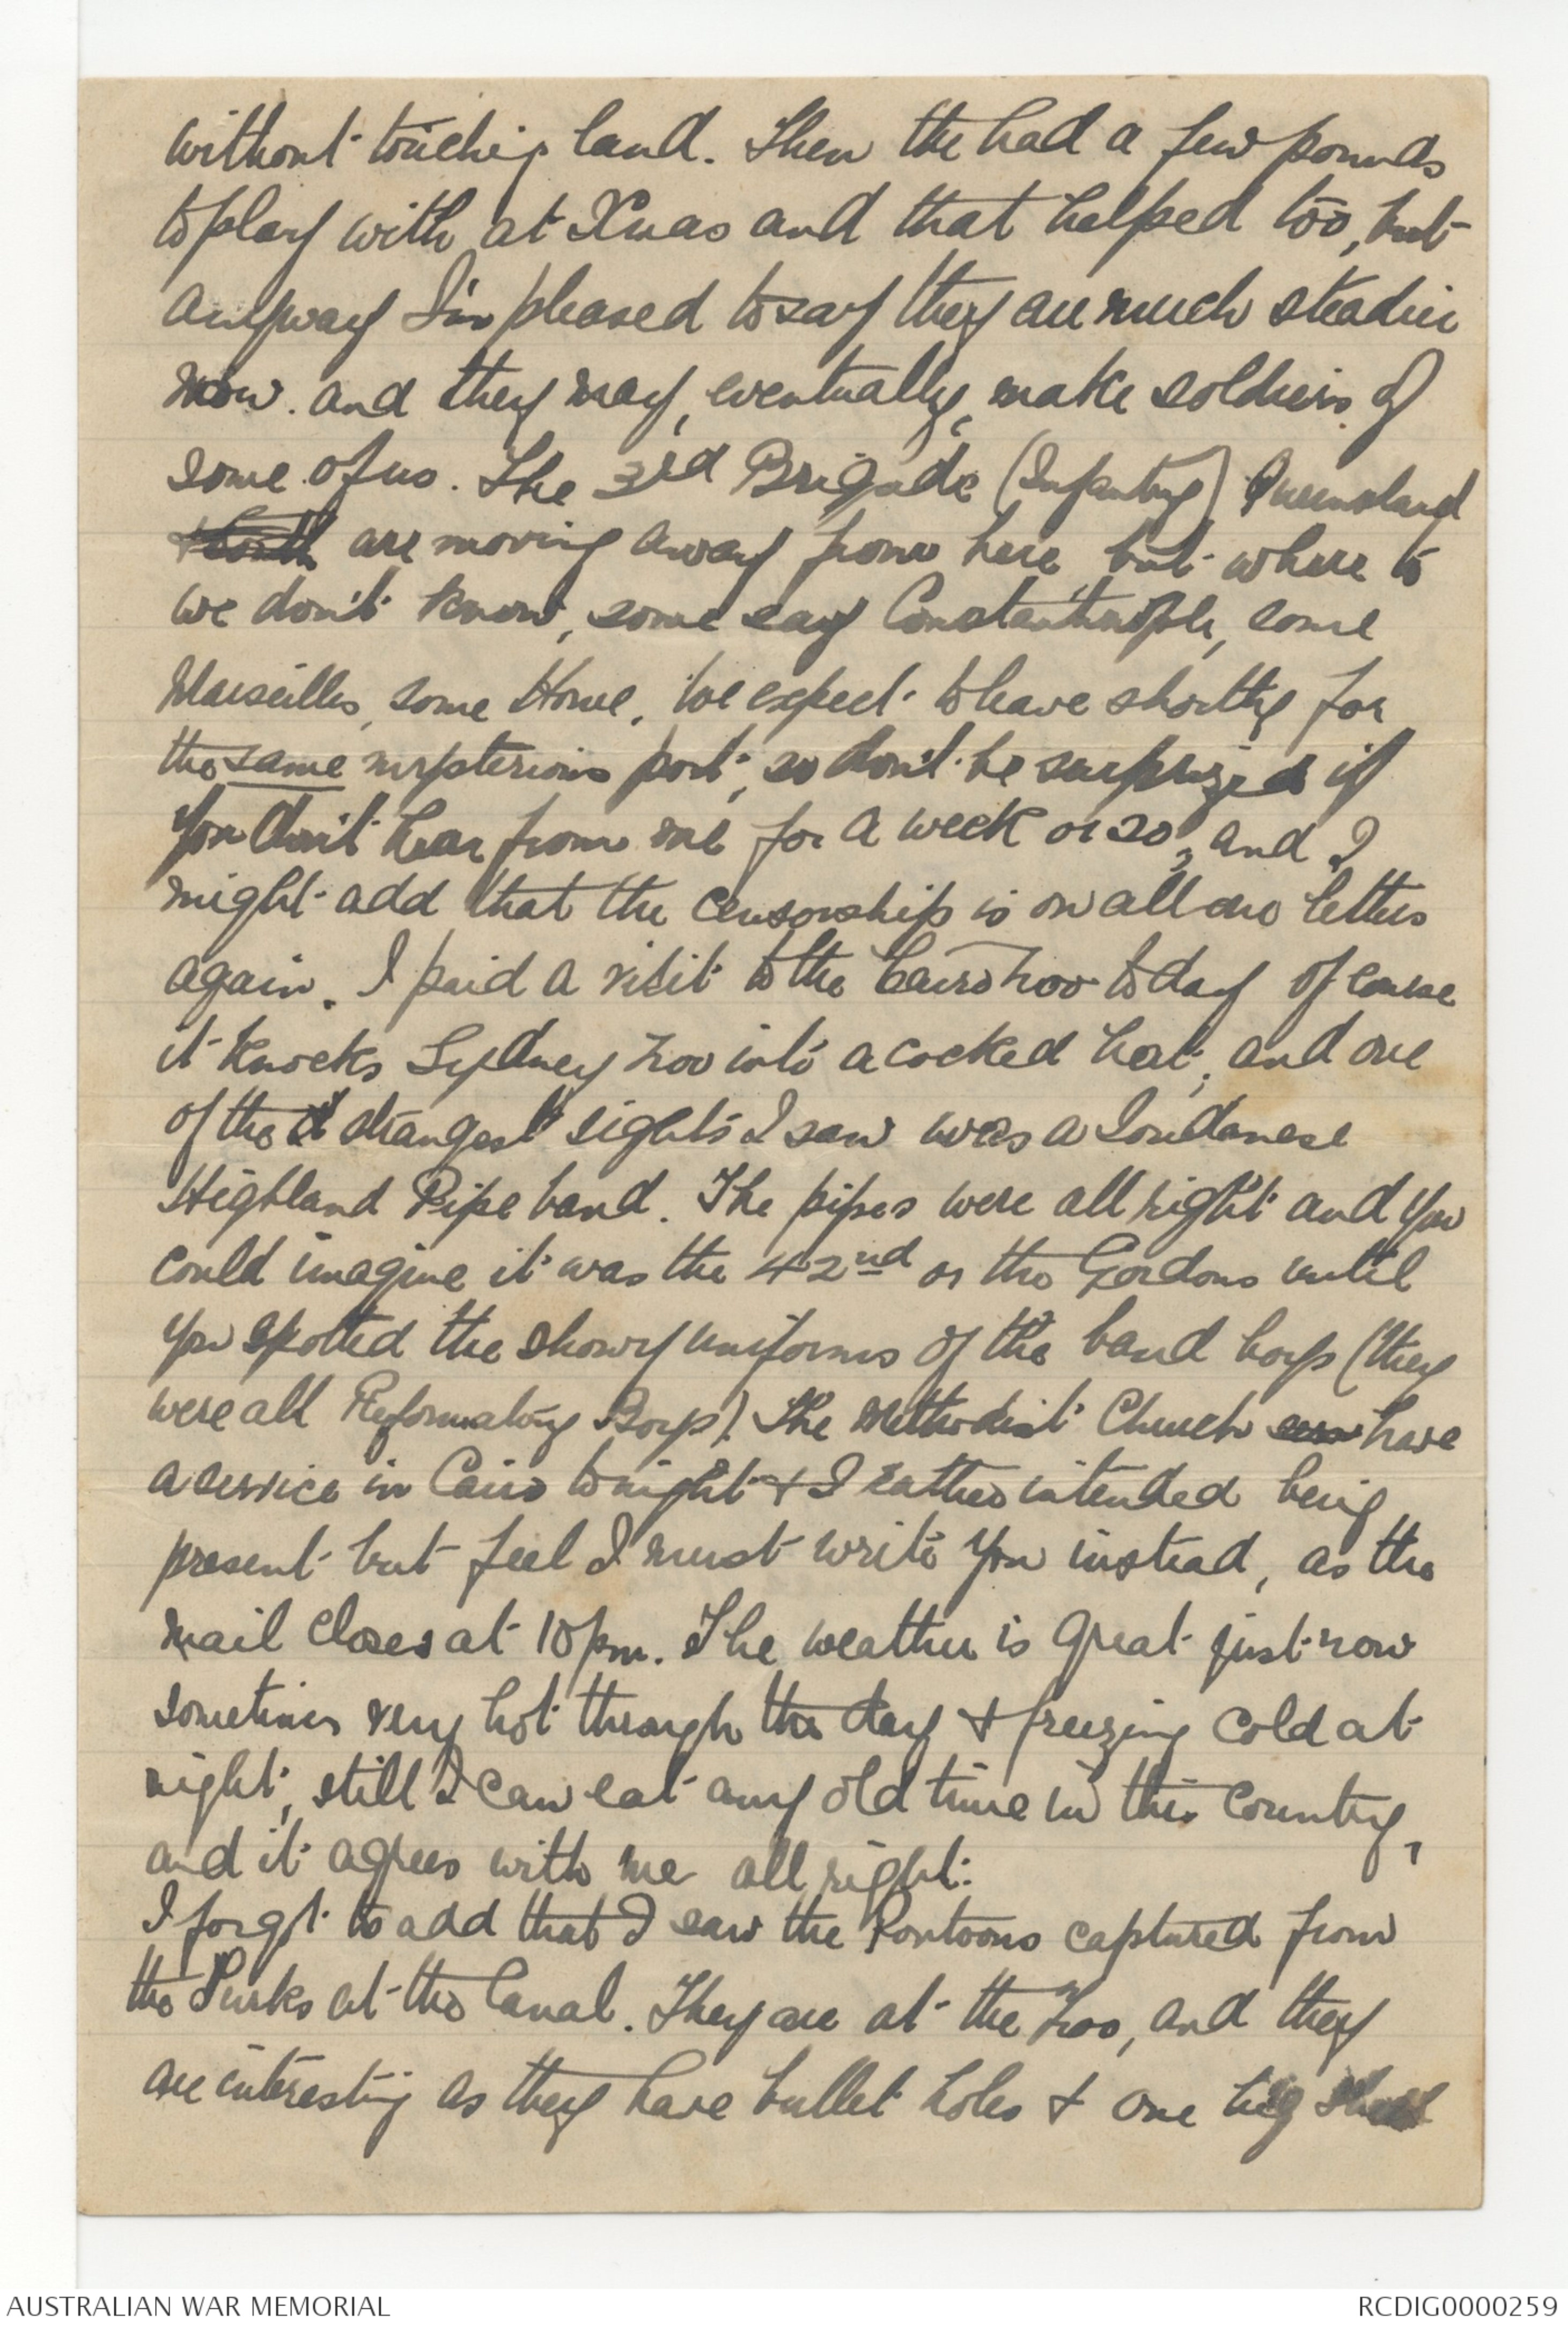 without touching land. Then the had a few pounds
to play with at Xmas and that helped too, but
anyway I'm pleased to say they are much steadier
now. and they may, eventually, make soldiers of
some of us. The 3rd Brigade (Infantry) Queensland
are moving away from here but where to
we don't know, some say Constantinople, some
Marseilles, some Home. We expect to leave shortly for
the same mysterious port, so don't be surprized if
you don't hear from me for a week or so, and I
might add that the censorship is on all our letters
again. I paid a visit to the Cairo Zoo today of course
it knocks Sydney Zoo into a cocked hat, and one
of the strangest sights I saw was a Soudanese
Highland Pipe band. The pipes were all right and you
could imagine it was the 42nd or the Gordons until
you spotted the showy uniforms of the band boys (they
were all Reformatory Boys). The Methodist Church have
a service in Cairo tonight & I rather intended being
present but feel I must write you instead, as the
mail closes at 10 pm. The weather is great just now
sometimes very hot through the day & freezing cold at
night, still I can eat any old time in this country,
and it agrees with me all right.
I forgot to add that I saw the Pontoons captured from
the Turks at the Canal. They are at the Zoo, and they
are interesting as they have bullet holes & one big shell
AUSTRALIAN WAR MEMORIAL
RCDIG0000259